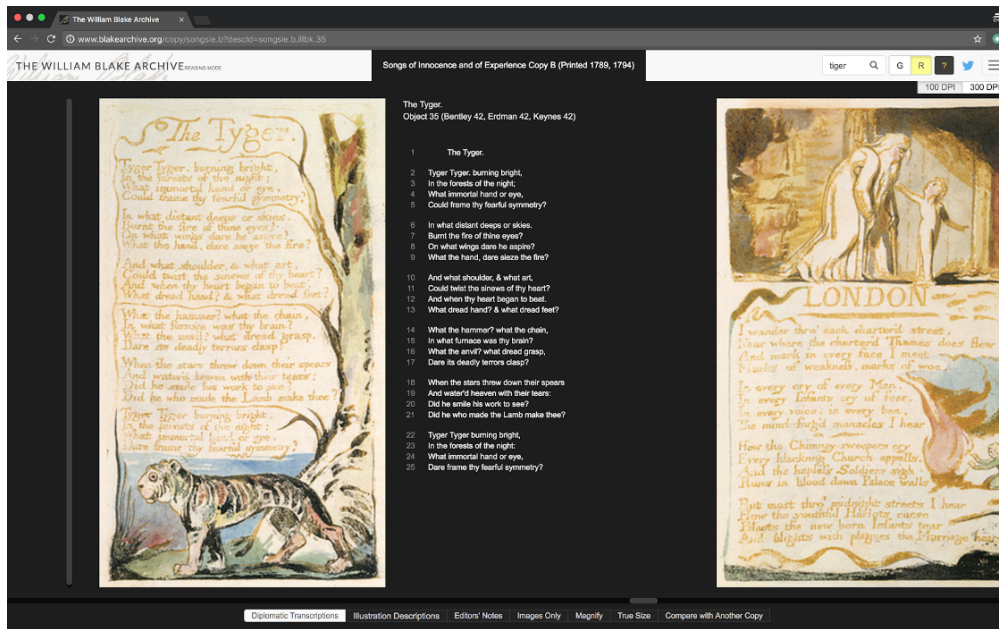 The William Blake Archive
www.blakearchive.org/copy/songsie.b?descId=songsie.b.illbk.35
THE WILLIAM BLAKE ARCHIVE READING MODE
Songs of Innocence and of Experience Copy B (Printed 1789, 1794)
tiger
G
R
?
100 DPI
300 DPI
The Tyger.
Tyger Tyger, burning bright,
In the forests of the night;
What immortal hand or eye,
Could frame thy fearful symmetry?
In what distant deeps or skies.
Burnt the fire of thine eyes?
On what wings dare he aspire?
What the hand, dare sieze the fire?
And what shoulder, & what art,
Could twist the sinews of thy heart?
And when thy heart began to beat,
What dread hand? & what dread feet?
What the hammer? what the chain,
In what furnace was thy brain?
What the anvil? what dread grasp,
Dare its deadly terrors clasp?
When the stars threw down their spears
And water'd heaven with their tears:
Did he smile his work to see?
Did he who made the Lamb make thee?
Tyger Tyger burning bright,
In the forests of the night:
What immortal hand or eye,
Dare frame thy fearful symmetry?
The Tyger.
Object 35 (Bentley 42, Erdman 42, Keynes 42)
1 The Tyger.
2 Tyger Tyger. burning bright,
3 In the forests of the night;
4 What immortal hand or eye,
5 Could frame thy fearful symmetry?
6 In what distant deeps or skies.
7 Burnt the fire of thine eyes?
8 On what wings dare he aspire?
9 What the hand, dare sieze the fire?
10 And what shoulder, & what art,
11 Could twist the sinews of thy heart?
12 And when thy heart began to beat.
13 What dread hand? & what dread feet?
14 What the hammer? what the chain,
15 In what furnace was thy brain?
16 What the anvil? what dread grasp,
17 Dare its deadly terrors clasp?
18 When the stars threw down their spears
19 And water'd heaven with their tears:
20 Did he smile his work to see?
21 Did he who made the Lamb make thee?
22 Tyger Tyger burning bright,
23 In the forests of the night:
24 What immortal hand or eye,
25 Dare frame thy fearful symmetry?
LONDON
I wander thro' each charter'd street,
Near where the charter'd Thames does flow
And mark in every face I meet
Marks of weakness, marks of woe.
In every cry of every Man,
In every Infants cry of fear,
In every voice; in every ban,
The mind-forg'd manacles I hear
How the Chimney-sweepers cry
Every blackning Church appalls,
And the hapless Soldiers sigh
Runs in blood down Palace walls
But most thro' midnight streets I hear
How the youthful Harlots curse
Blasts the new born Infants tear
And blights with plagues the Marriage hear
Diplomatic Transcriptions
Illustration Descriptions
Editors' Notes
Images Only
Magnify
True Size
Compare with Another Copy